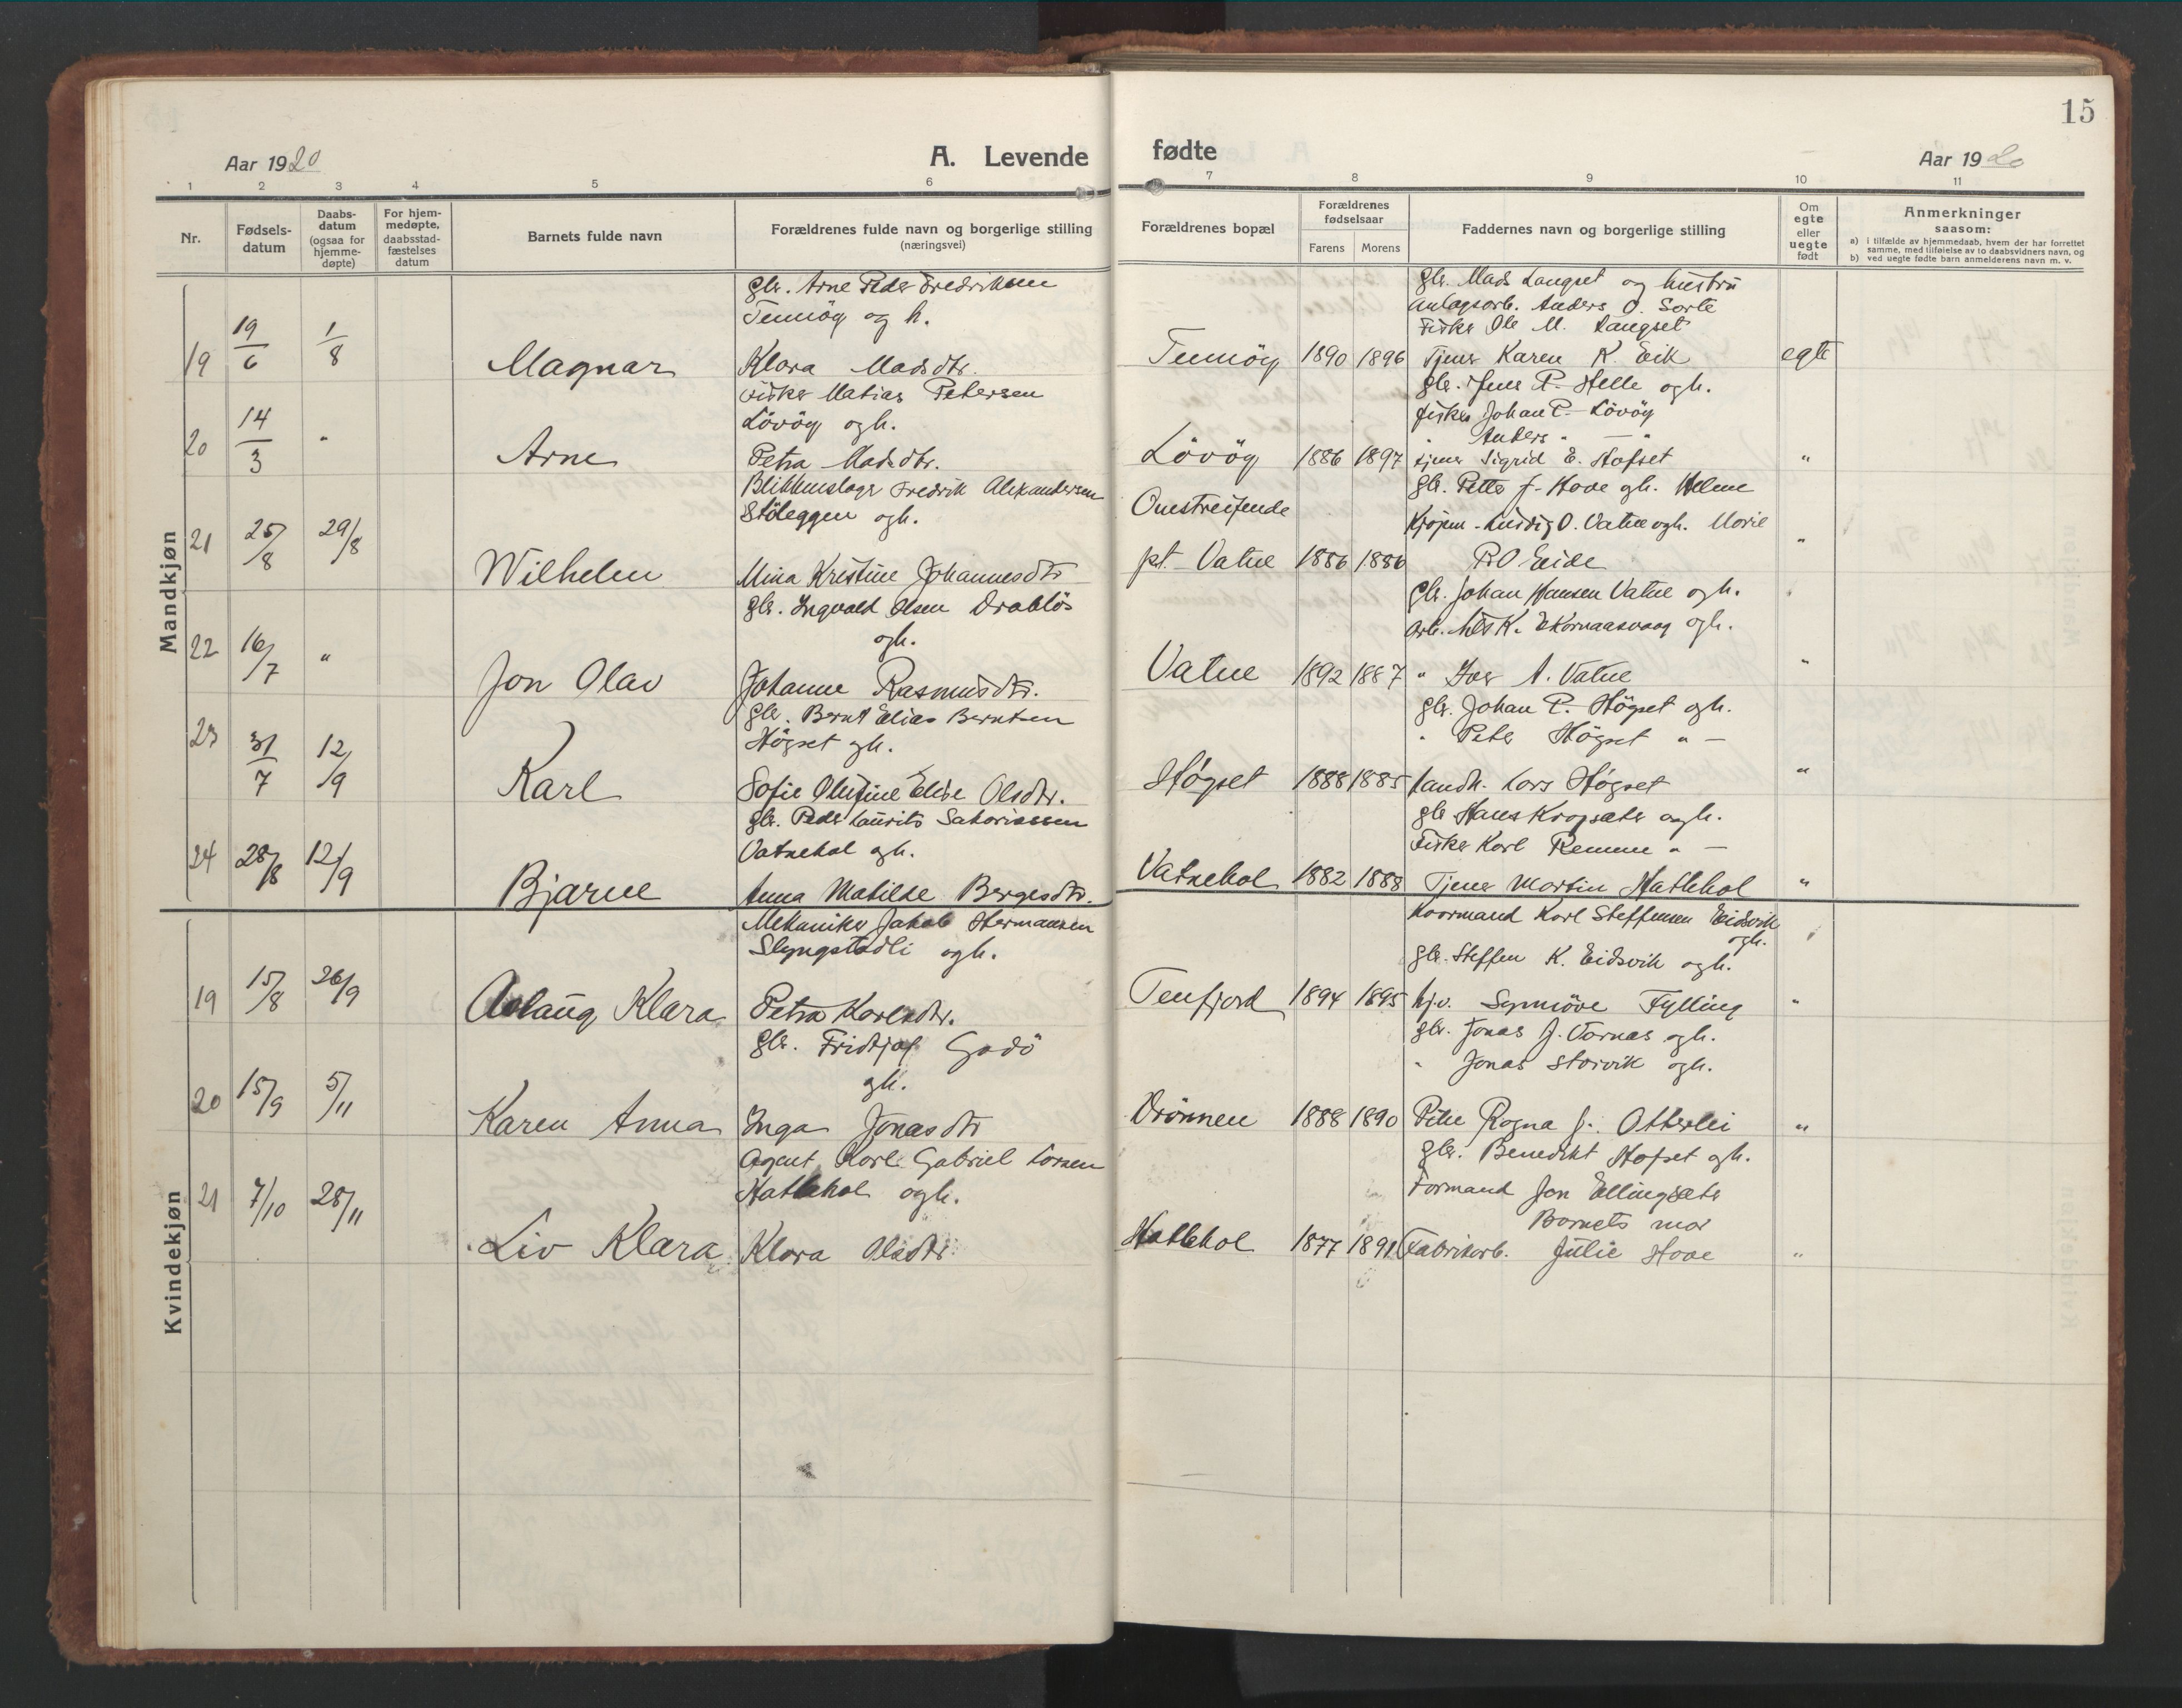 15
Aar 1920
A. Levende
fødte
Aar 1920
1 2 3 4 5 6 7 8 9 10 11
Nr.
Fødsels-
datum
Daabs-
datum
(ogsaa for
hjemme-
døpte)
For hjem-
medøpte,
daabsstad-
fæstelses
datum
Barnets fulde navn
Forældrenes fulde navn og borgerlige stilling
(næringsvei)
Forældrenes bopæl
Forældrenes
fødselsaar
Farens Morens
Faddernes navn og borgerlige stilling
Om
egte
eller
uegte
født
Anmerkninger
saasom:
a) i tilfælde av hjemmedaab, hvem der har forrettet
samme, med tilføielse av to daabsvidners navn, og
b) ved uegte fødte barn anmelderens navn m. v.
Mandkjøn
19 19/6 1/8 Magnar
gbr. Arne Peder Fredriksen
Tennöy og h.
Klara Madsdtr.
Tennöy 1890 1896
gbr. Mads Langset og hustru
Anlagsarb. Anders O. Sorte
Fisker Ole M. Langset
Tjener Karen K. Eik
egte
20 14/3 " Arne
Fisker Matias Petersen
Lövöy ogh.
Petra Madsdtr.
Lövöy 1886 1897
gbr. Jens P. Helle ogh.
fisker Johan P. Lövöy
" Anders " — "
tjener Sigrid E. Hofset
"
21 25/8 29/8 Wilhelm
Blikkenslager Fredrik Alexandersen
Stöleggen ogh.
Mina Kristine Johannesdtr
Omstreifende
pt. Vatne 1886 1886
gbr. Petter J. Hove gh. Helene
Kjøpm. Ludvig O. Vatne ogh. Marie
P.O Eide
"
22 16/7 " Jon Olav
gbr. Ingvald Olsen Drabløs
ogh.
Johanne Rasmusdtr.
Vatne 1892 1887
gbr. Johan Hansen Vatne ogh.
Arb. Nils K. Ekornaasvaag ogh.
" Iver A. Vatne
"
23 31/7 12/9 Karl
gbr. Bernt Elias Berntsen
Högset gh.
Sofie Olufine Elise Olsdtr.
Högset 1888 1885
gbr. Johan P. Högset ogh.
" Peter Högset " —
Landh. Lars Högset
"
24 28/8 12/9 Bjarne
gbr. Peder Laurits Sakariassen
Vatnehol gh.
Anna Matilde Bergesdtr.
Vatnehol 1882 1888
gbr Hans Kropsæter ogh.
Fisker Karl Remme " —
Tjener Martin Hatlehol
"
Kvindekjøn
19 15/8 26/9 Aslaug Klara
Mekaniker Jakob Hermansen
Slyngstadli ogh.
Petra Karlsdtr.
Tenfjord 1894 1895
Karl Steffensen Eidsvik
ogh.
gbr. Steffen K. Eidsvik ogh.
hj.v. Synnöve Fylling
"
20 15/9 5/11 Karen Anna
gbr. Fridtjof Godö
gh.
Inga Jonasdtr
Drönnen 1888 1890
gbr. Jonas J. Vornæs ogh.
" Jonas Storvik ogh.
Pike Ragna J. Otterlei
"
21 7/10 28/11 Liv Klara
Agent Karl Gabriel Larsen
Hatlehol ogh.
Klara Olsdtr
Hatlehol 1877 1891
gbr. Benedikt Hofset gh.
Formand Jon Ellingsæter
Barnets mor
Fabrikarb. Julie Hove
"